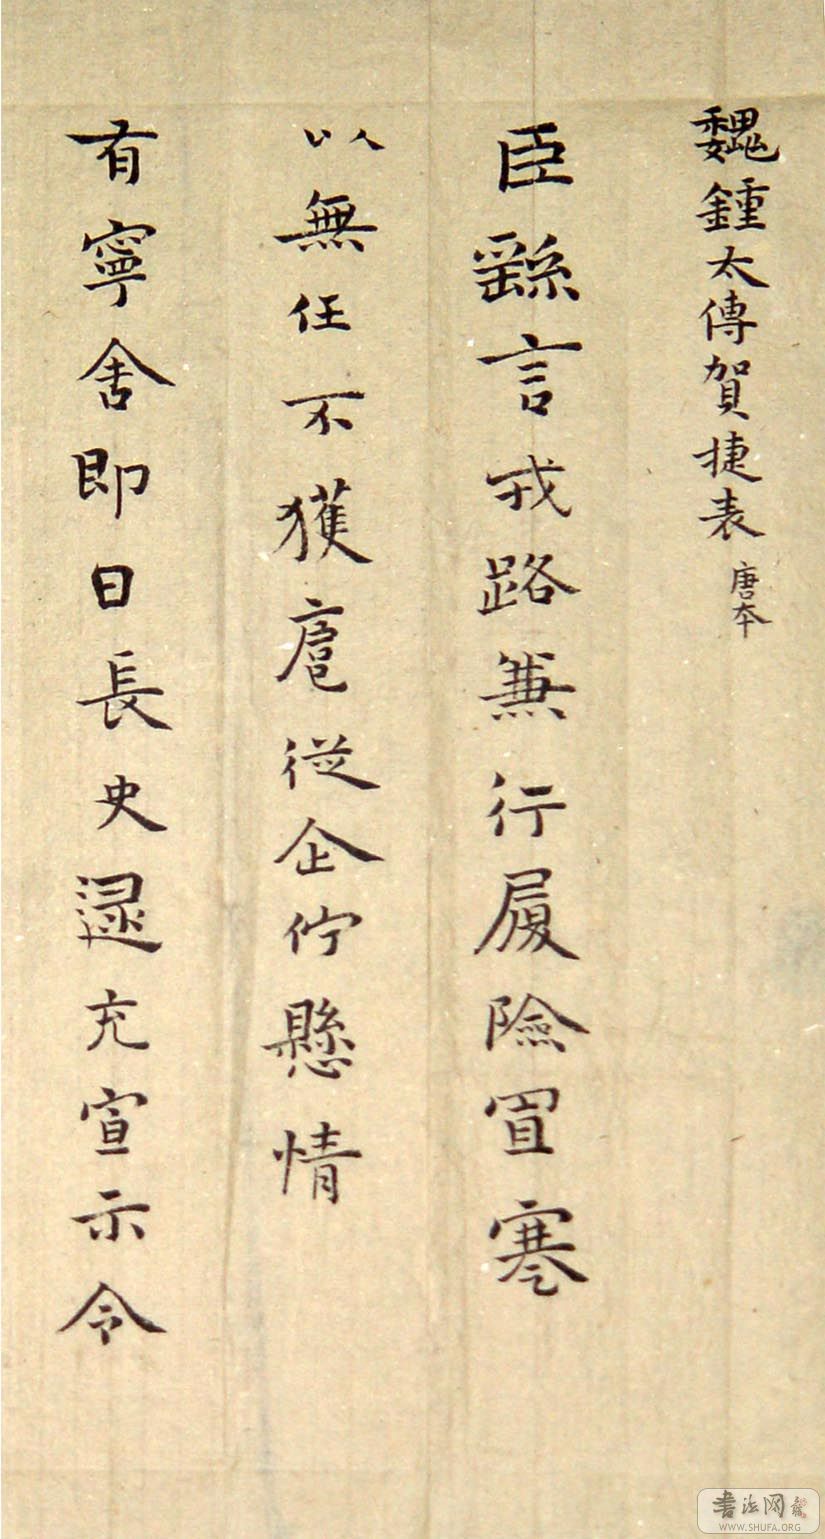 魏鍾太傅賀捷表 唐本
臣繇言戎路兼行履險冒寒
以無任不獲扈從企佇懸情
有寧舍即日長史逯充宣示令
書法网
WWW.SHUFA.ORG